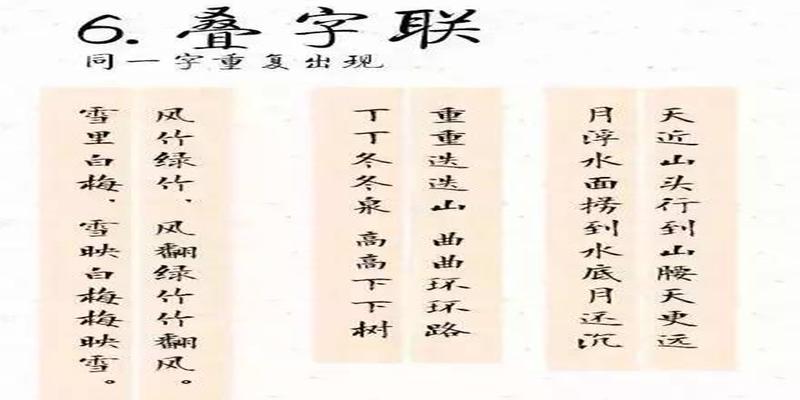 6. 叠字联
同一字重复出现
天近山头行到山腰天更远
月浮水面捞到水底月还沉
重重迭迭山 曲曲环环路
丁丁冬冬泉 高高下下树
风竹绿竹、风翻绿竹竹翻风。
雪里白梅、雪映白梅梅映雪。